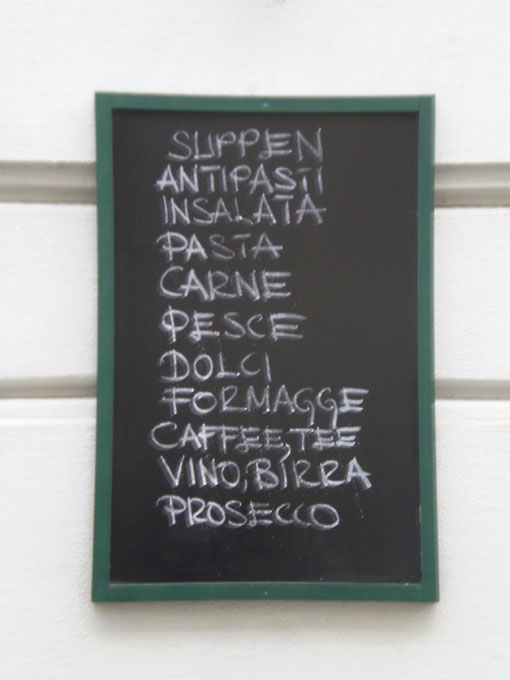 SUPPEN
ANTIPASTI
INSALATA
PASTA
CARNE
PESCE
DOLCI
FORMAGGE
CAFFEE, TEE
VINO, BIRRA
PROSECCO